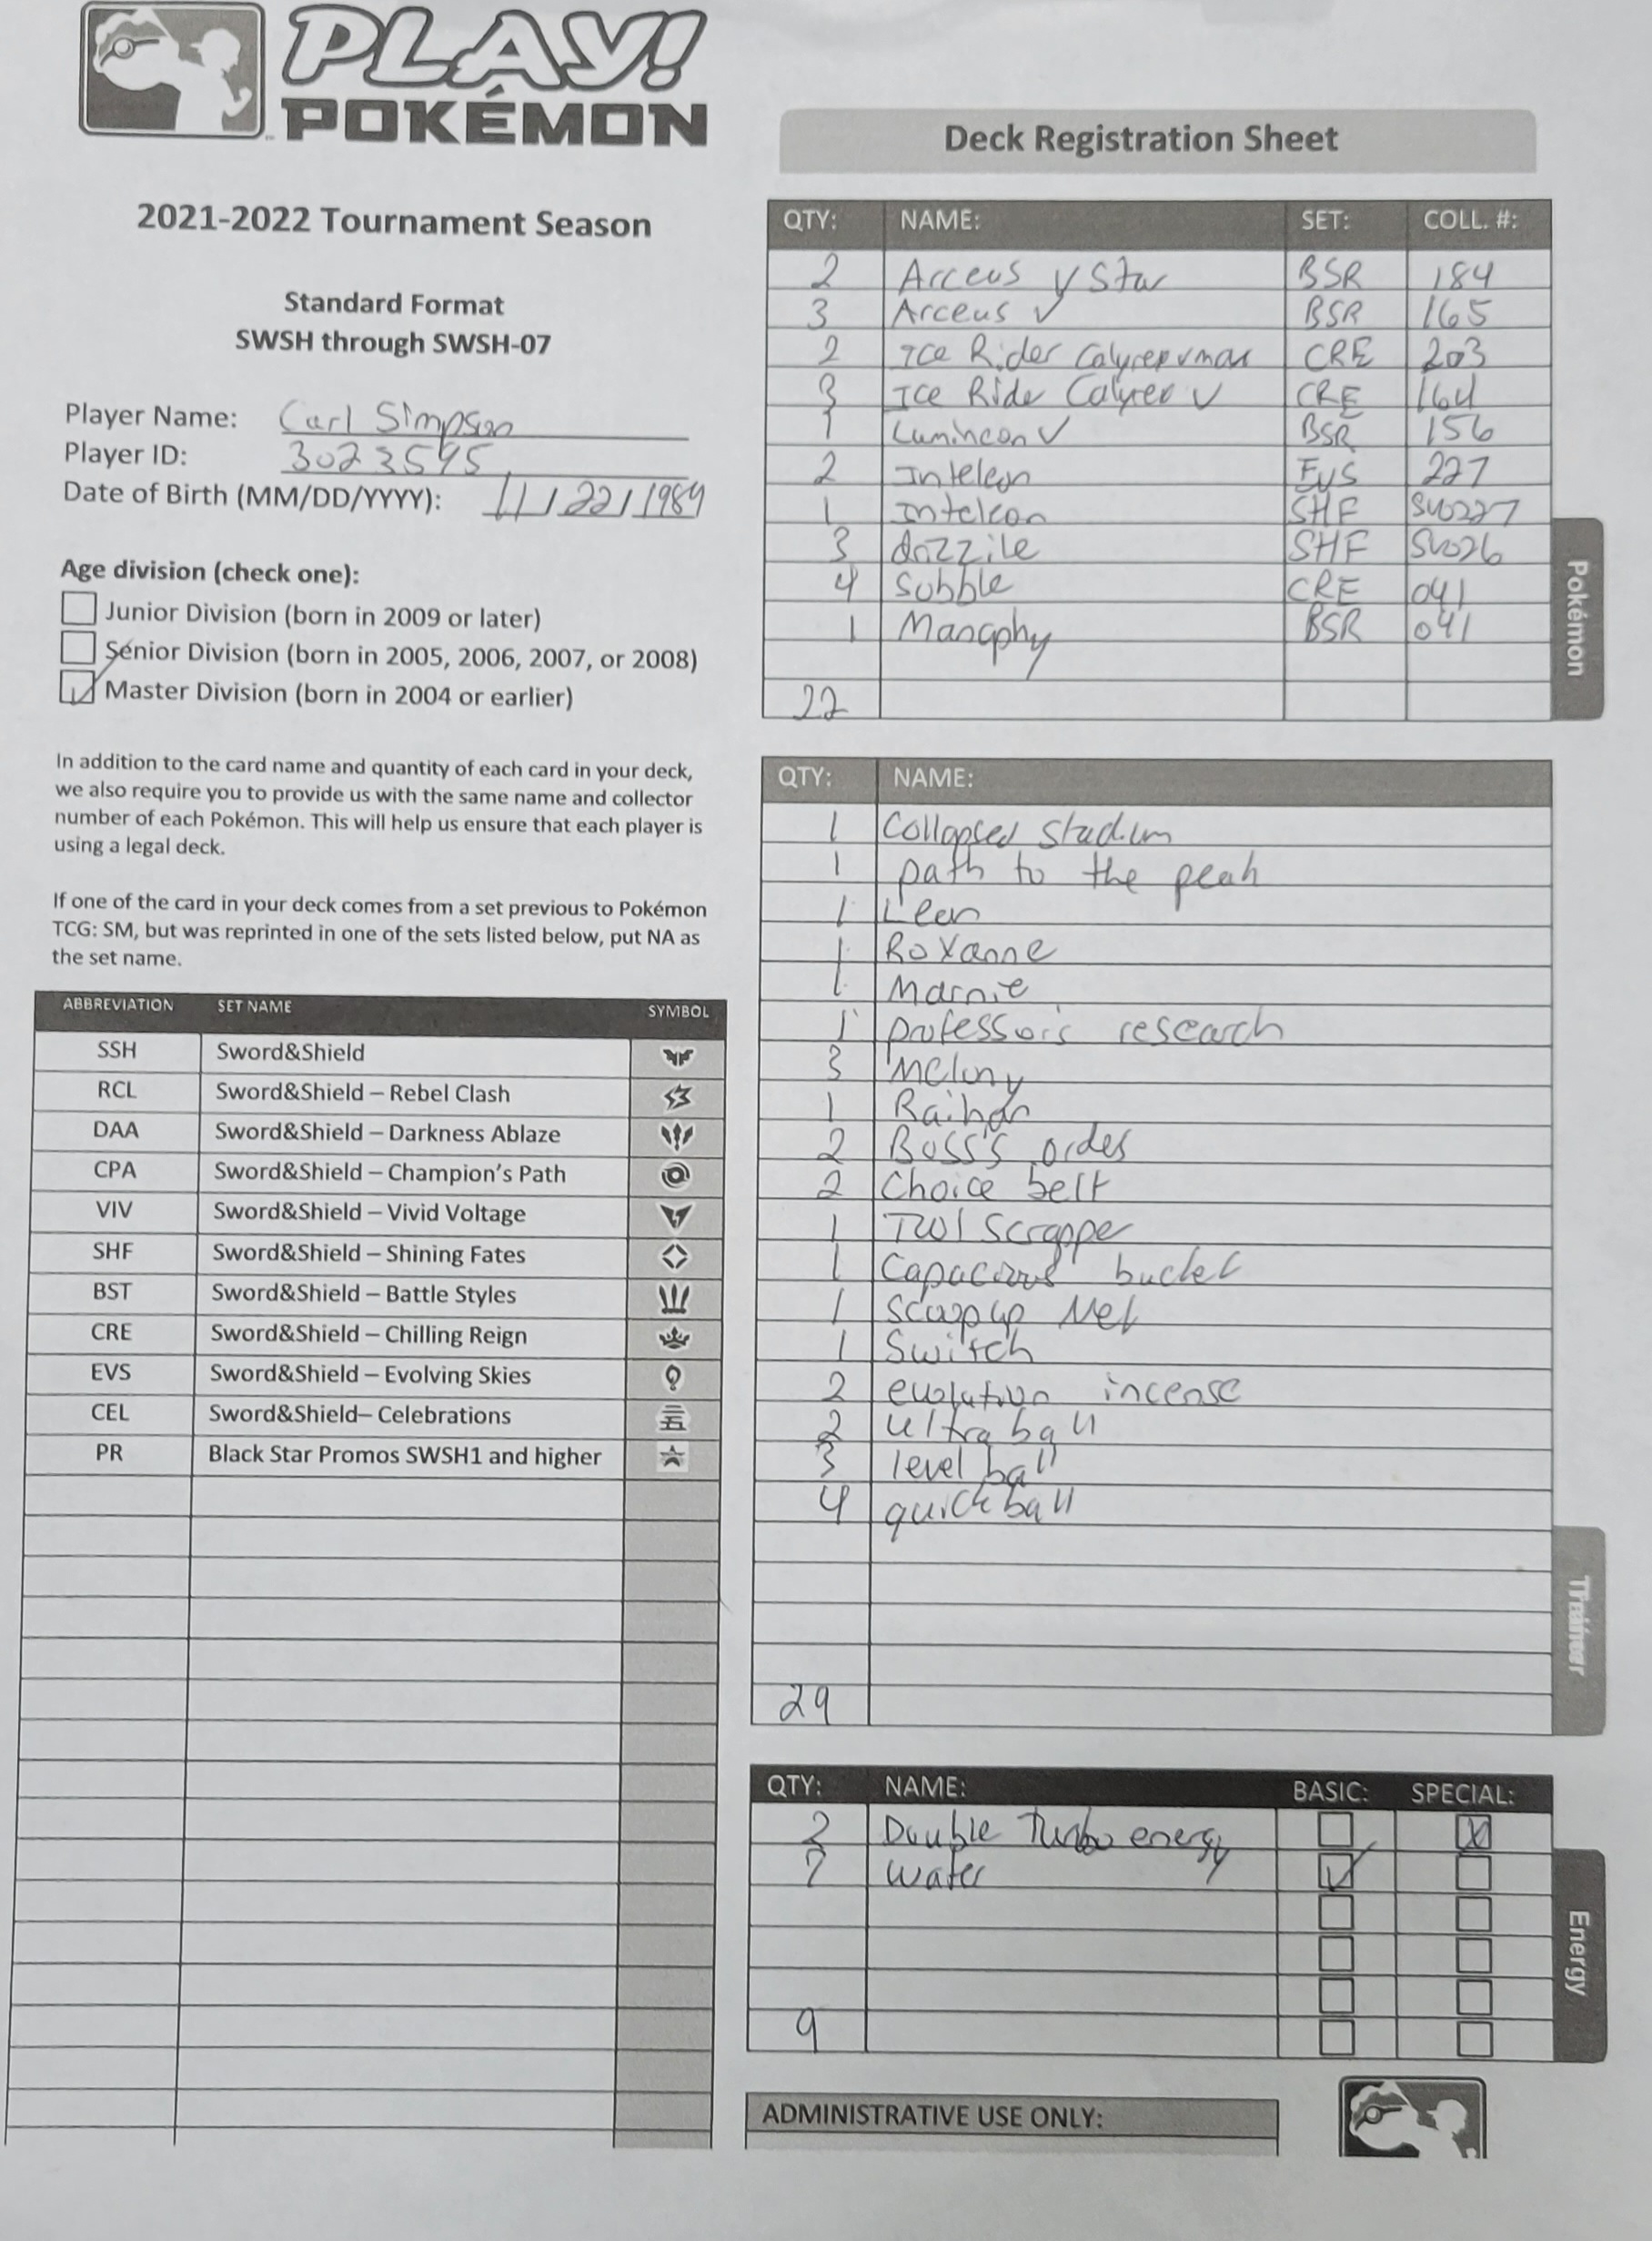 PLAY!
POKÉMON
2021-2022 Tournament Season
Standard Format
SWSH through SWSH-07
Player Name: Carl Simpson
Player ID: 3023595
Date of Birth (MM/DD/YYYY): 11/22/1984
Age division (check one):
Junior Division (born in 2009 or later)
Senior Division (born in 2005, 2006, 2007, or 2008)
Master Division (born in 2004 or earlier)
In addition to the card name and quantity of each card in your deck,
we also require you to provide us with the same name and collector
number of each Pokémon. This will help us ensure that each player is
using a legal deck.
If one of the card in your deck comes from a set previous to Pokémon
TCG: SM, but was reprinted in one of the sets listed below, put NA as
the set name.
ABBREVIATION SET NAME SYMBOL
SSH Sword&Shield
RCL Sword&Shield – Rebel Clash
DAA Sword&Shield – Darkness Ablaze
CPA Sword&Shield – Champion's Path
VIV Sword&Shield – Vivid Voltage
SHF Sword&Shield – Shining Fates
BST Sword&Shield – Battle Styles
CRE Sword&Shield – Chilling Reign
EVS Sword&Shield – Evolving Skies
CEL Sword&Shield– Celebrations
PR Black Star Promos SWSH1 and higher
Deck Registration Sheet
QTY: NAME: SET: COLL. #:
2 Arceus V Star BSR 184
3 Arceus V BSR 165
2 Ice Rider Calyrex vmax CRE 203
3 Ice Ride Calyrex V CRE 164
1 Lumineon V BSR 156
2 Inteleon EVS 227
1 Inteleon SHF SV027
3 drizzile SHF SV026
4 Sobble CRE 041
1 Manaphy BSR 041
22
Pokémon
QTY: NAME:
1 Collapsed stadium
1 path to the peak
1 Leon
1 Roxanne
1 Marnie
1 professor's research
3 Melony
1 Raihan
2 Boss's ordes
2 Choice belt
1 Tool Scrapper
1 Capacious bucket
1 scoop up Net
1 Switch
2 evolution incense
2 ultra ball
3 level ball
4 quick ball
29
Trainer
QTY: NAME: BASIC: SPECIAL:
2 Double Turbo energy
7 water
9
Energy
ADMINISTRATIVE USE ONLY: